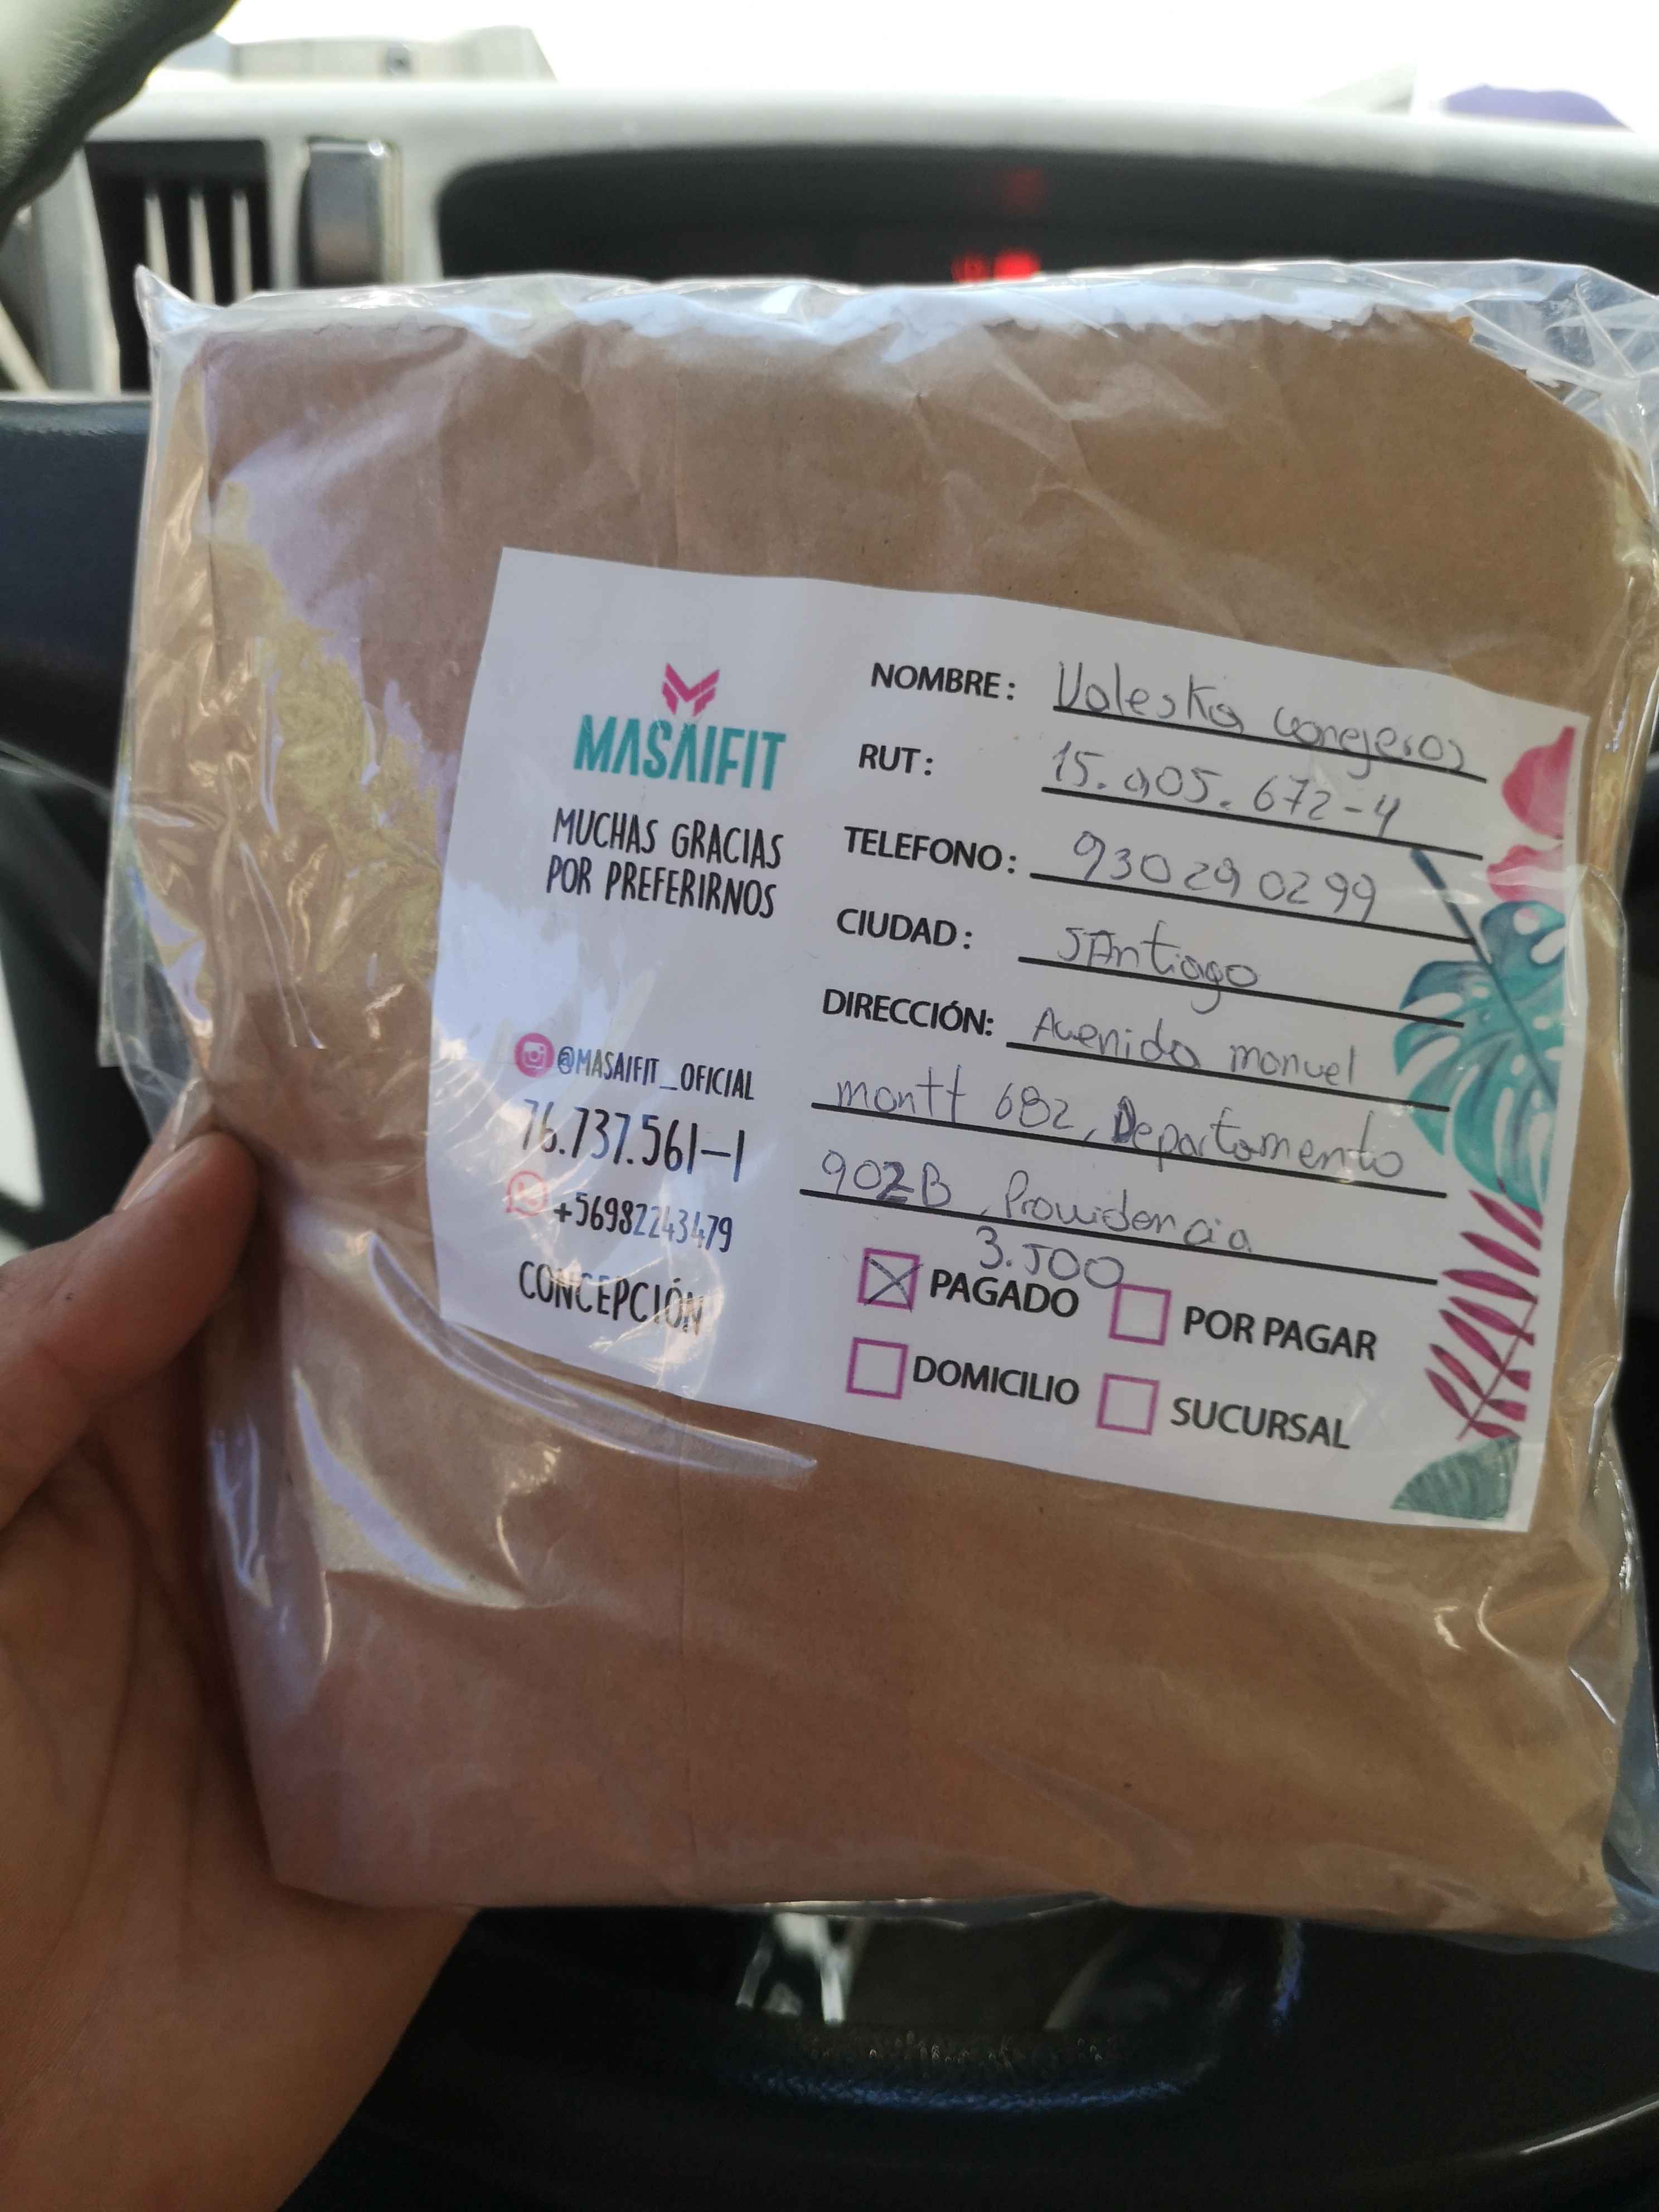 MASAIFIT
MUCHAS GRACIAS
POR PREFERIRNOS
@MASAIFIT_OFICIAL
76.737.561-1
+56982243479
CONCEPCIÓN
NOMBRE: Valeska conejeros
RUT: 15.905.672-4
TELEFONO: 930290299
CIUDAD: SAntiago
DIRECCIÓN: Avenida manuel
montt 682, Departamento
902B, Providencia
3.500
PAGADO POR PAGAR
DOMICILIO SUCURSAL